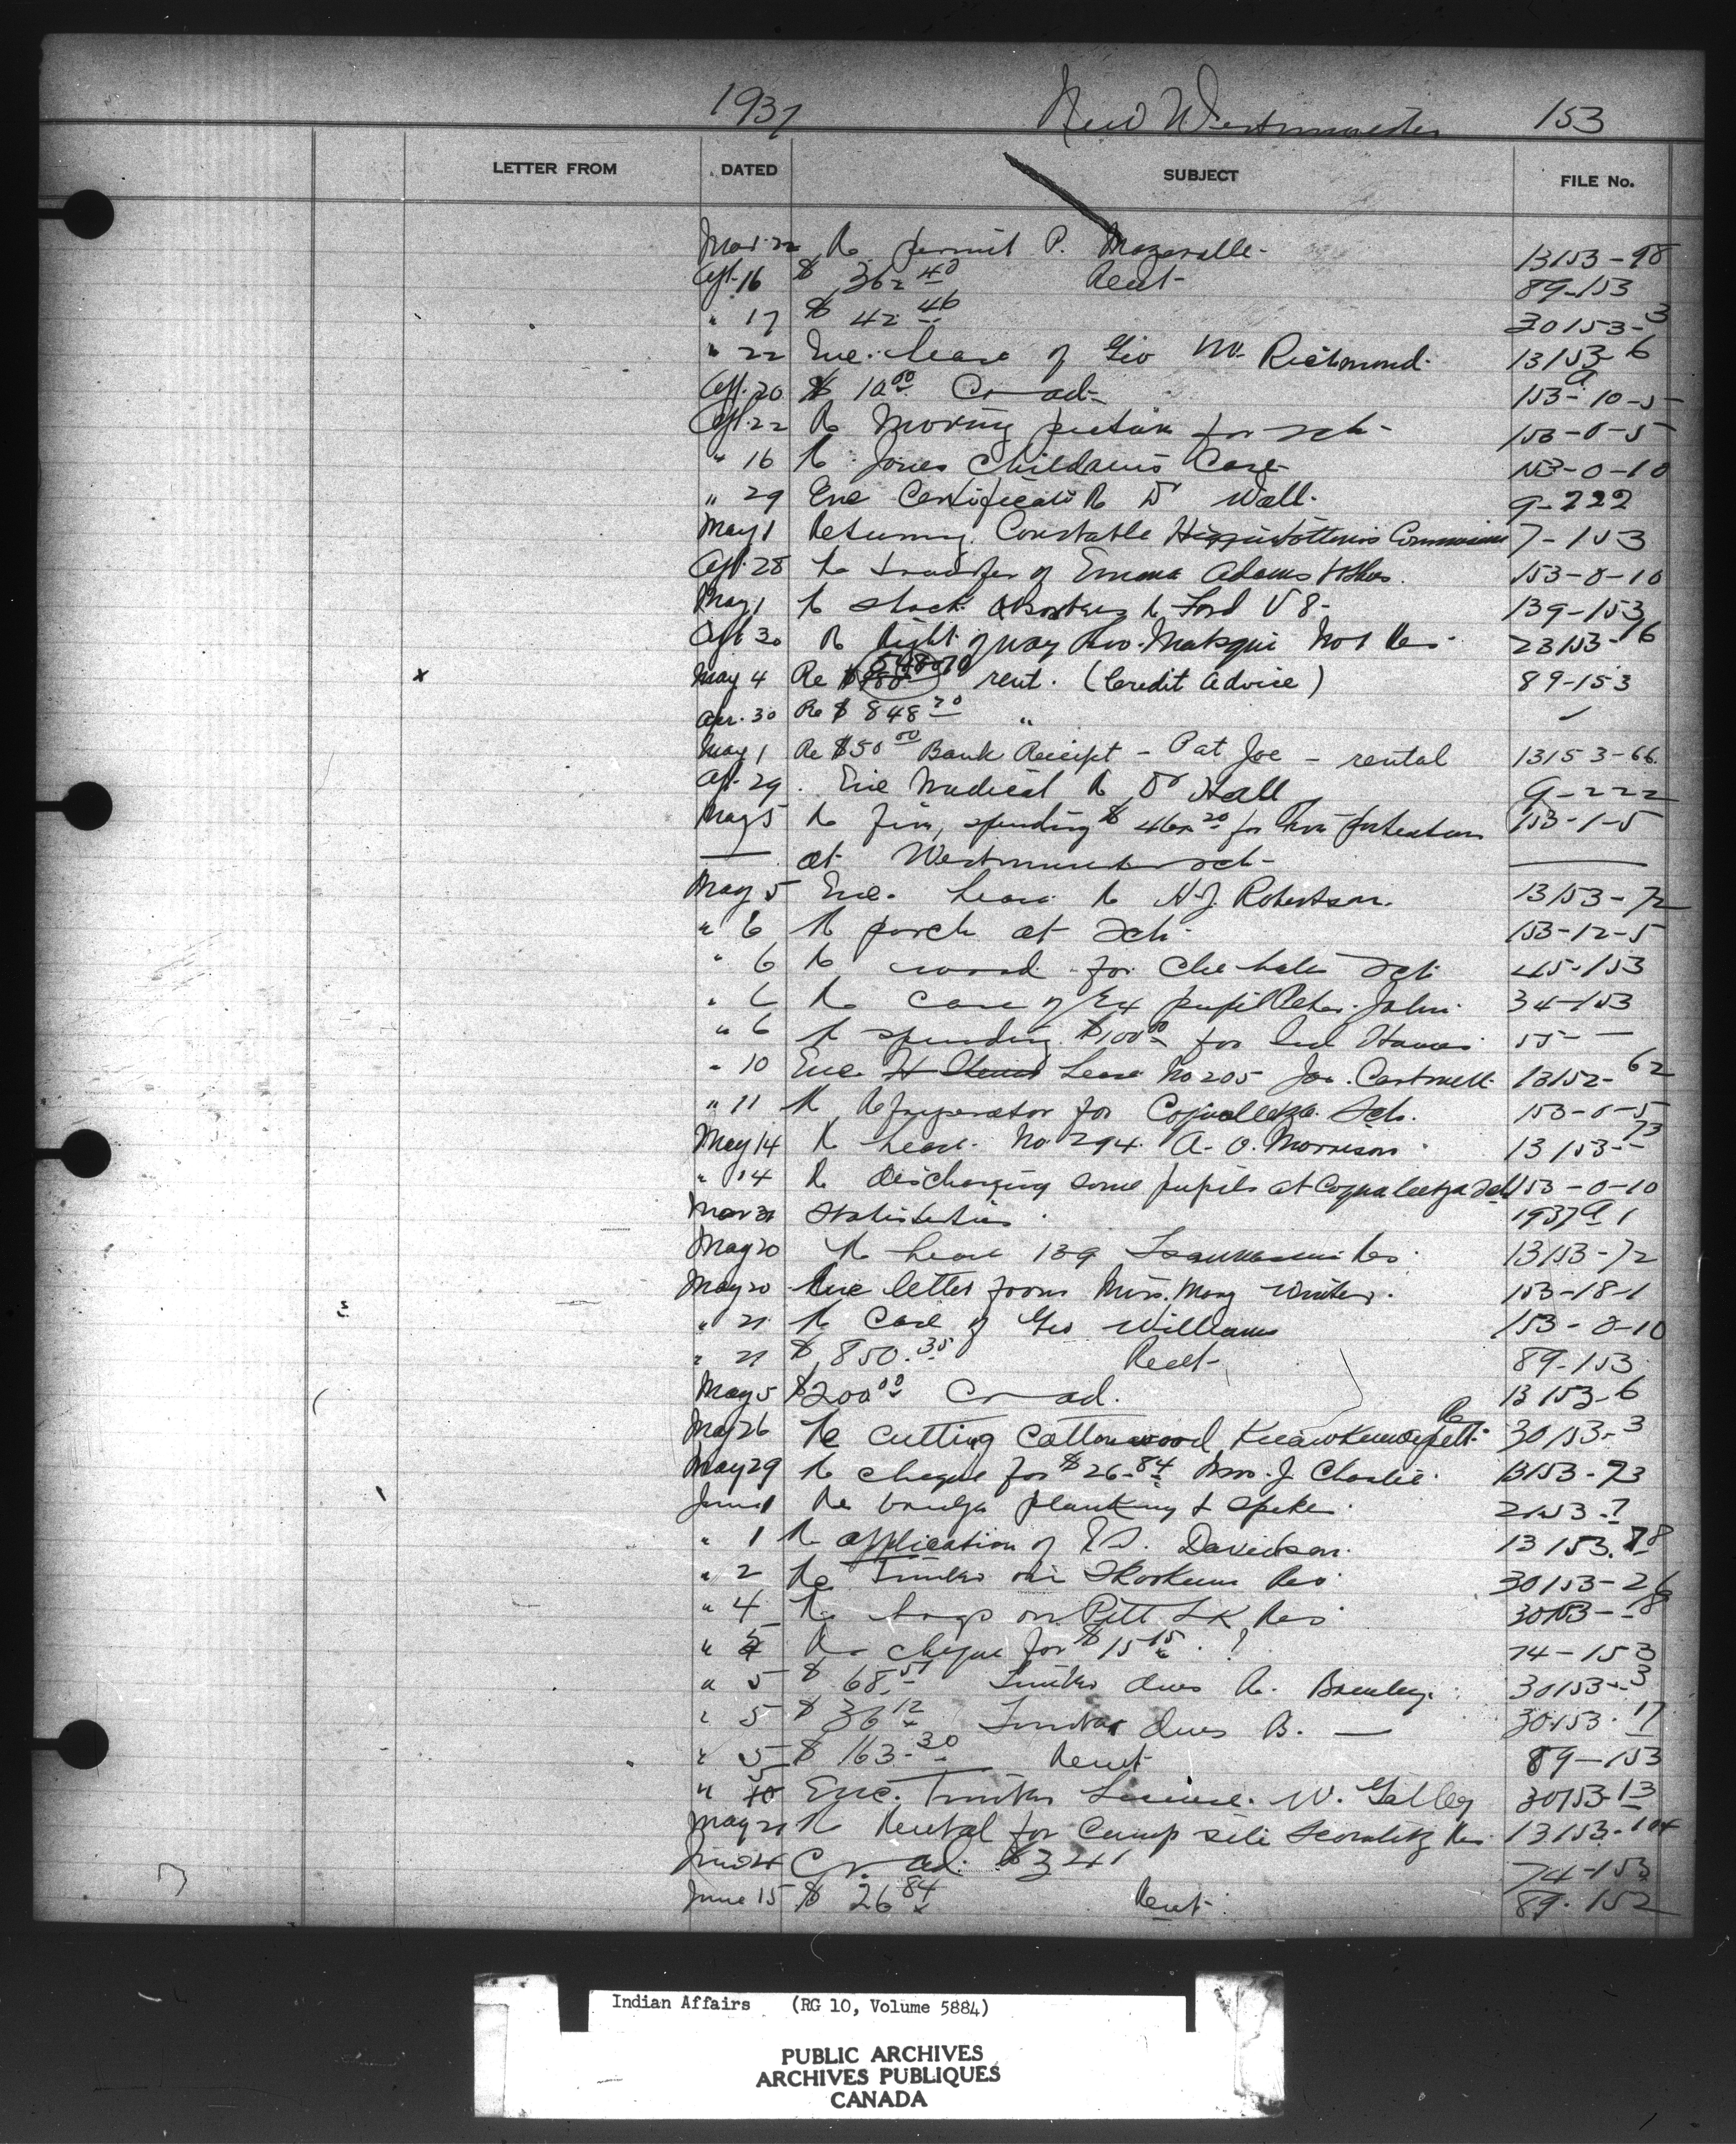 1937 New Westminster 153
LETTER FROM DATED SUBJECT FILE No.
Mar. 22 Re permit P. 13153-98
Apl. 16 $ 362 40 Rent 89-153
" 17 $ 42 46 30153-3
" 22 Enc. Lease of Geo W. Richmond 13153-6
Apl. 20 $ 10 00 Cr ad 153-10-5
Apl. 22 Re Moving picture for sch 153-0-5
" 16 Re Jones Children's Case 153-0-10
" 29 Enc Certificate Re Dr Wall 9-222
May 1 Returning Constable Commission 7-153
Apl. 28 Re transfer of Emma Adams & others 153-0-10
May 1 Re shock absorbers Re Ford V 8 139-153
Apl 30 Re Right of way Matsqui No 1 Res 23153-16
x May 4 Re $ rent. (Credit Advice) 89-153
Apr. 30 Re $ 848 70 "
May 1 Re $50 00 Bank Receipt - Pat Joe - rental 13153-66
Apl. 29 Enc Medical Re Dr Hall 9-222
May 5 Re Jin, spending $ for fire protection 153-1-5
at Westminster sch
May 5 Enc. Lease Re H.J. Robertson. 13153-72
" 6 Re porch at Sch 153-12-5
" 6 Re wood for Chehalis Sch 45-153
" 6 Re case of Ex pupil Peter John 34-153
" 6 Re spending $100 00 for Ind Homes 55 —
" 10 Enc Lease No 205 Jos. Cartmell 13152-62
" 11 Re Refrigerator for Coqualeetza Sch. 153-0-5
May 14 Re Lease No 294 A. O. Morrison 13153-73
" 14 Re discharging some pupils at Coqualeetza Sch 153-0-10
Mar 31 Statistics 1937 A 1
May 20 Re Lease 139 Tsawwassen Res 13153-72
May 20 Enc letter from Mrs. Mary Winters. 153-18-1
" 21 Re Case of Geo Williams 153-0-10
" 21 $ 850.35 Rent 89-153
May 5 $200 00 Cr ad. 13153-6
May 26 Re Cutting Cottonwood Res 30153-3
May 29 Re cheque for $26.84 Mrs. J. Charlie 13153-73
June 1 Re bridge planking & spikes 2153-7
" 1 Re application of Davidson. 13153-78
" 2 Re Timber on Skookum Res 30153-26
" 4 Re logs on Pitt Lk Res 30153-18
" 5 Re cheque for $15 15 . ? 74-153
" 5 $ 68.51 Timber dues A. 30153-3
" 5 $ 36 12 Timber dues B. — 30153-17
" 5 $ 163.30 Rent 89-153
" 5 Enc. Timber License. W. Galley 30153-13
May 21 Re Rental for Camp site Scowlitz Res 13153-104
Cr ad. $ 3 41 74-153
June 15 $ 26 84 Rent 89-152
Indian Affairs (RG 10, Volume 5884)
PUBLIC ARCHIVES
ARCHIVES PUBLIQUES
CANADA